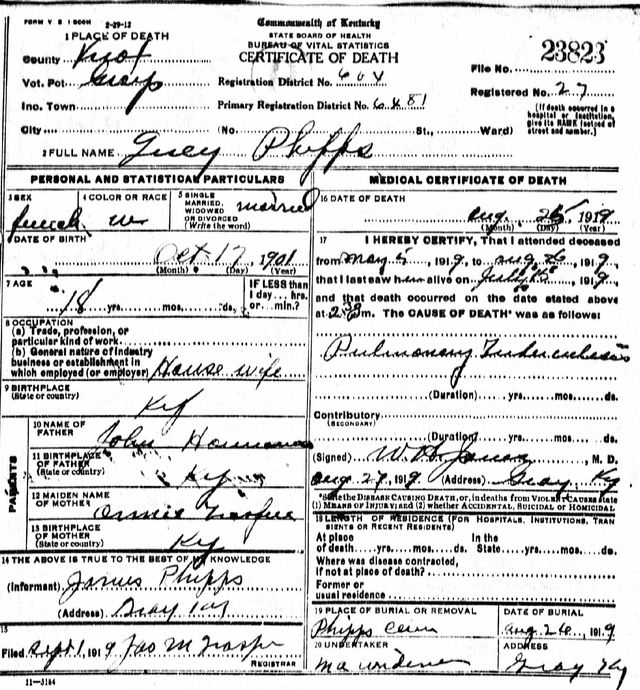 FORM V. S 1 500M 2-29-12
Commonwealth of Kentucky
STATE BOARD OF HEALTH
BUREAU OF VITAL STATISTICS
CERTIFICATE OF DEATH
1 PLACE OF DEATH
County Knox
Vot. Pct Grays
Inc. Town
City
Registration District No. 604
Primary Registration District No. 6481
(No. St., Ward)
File No. 23823
Registered No. 27
(If death occurred in a
hospital or institution,
give its NAME instead of
street and number.)
2 FULL NAME Phipps
PERSONAL AND STATISTICAL PARTICULARS
3 SEX
4 COLOR OR RACE W
5 SINGLE
MARRIED,
WIDOWED
OR DIVORCED
(Write the word)
married
DATE OF BIRTH
Oct 17, 1901
(Month) (Day) (Year)
7 AGE
18 yrs. mos. ds.
IF LESS than
1 day... hrs.
or... min.?
8 OCCUPATION
(a) Trade, profession, or
particular kind of work
(b) General nature of industry
business or establishment in
which employed (or employer) House wife
9 BIRTHPLACE
(State or country)
Ky
PARENTS
10 NAME OF
FATHER
John
11 BIRTHPLACE
OF FATHER
(State or country)
Ky
12 MAIDEN NAME
OF MOTHER
13 BIRTHPLACE
OF MOTHER
(State or country)
Ky
14 THE ABOVE IS TRUE TO THE BEST OF MY KNOWLEDGE
(Informant) James Phipps
(Address) Gray Ky
15
Filed Sept 1, 1919 Jas M Trosper
REGISTRAR
11-3184
MEDICAL CERTIFICATE OF DEATH
16 DATE OF DEATH
Aug. 1919
(Month) (Day) (Year)
17 I HEREBY CERTIFY, That I attended deceased
from May 5, 1919, to Aug 26, 1919,
that I last saw h alive on July, 1919,
and that death occurred on the date stated above
at m. The CAUSE OF DEATH* was as follows:
Pulmonary Tuberculosis
(Duration) yrs. mos. ds.
Contributory
(SECONDARY)
(Duration) yrs. mos. ds.
(Signed) M. D.
Aug 27, 1919 (Address) Gray Ky
*State the DISEASE CAUSING DEATH, or, in deaths from VIOLENT CAUSES state
(1) MEANS OF INJURY; and (2) whether ACCIDENTAL, SUICIDAL or HOMICIDAL
18 LENGTH OF RESIDENCE (FOR HOSPITALS, INSTITUTIONS, TRAN
SIENTS OR RECENT RESIDENTS)
At place In the
of death yrs. mos. ds. State yrs. mos. ds.
Where was disease contracted,
if not at place of death?
Former or
usual residence
19 PLACE OF BURIAL OR REMOVAL
Phipps Cem
DATE OF BURIAL
Aug 26, 1919
20 UNDERTAKER
ADDRESS
Gray Ky